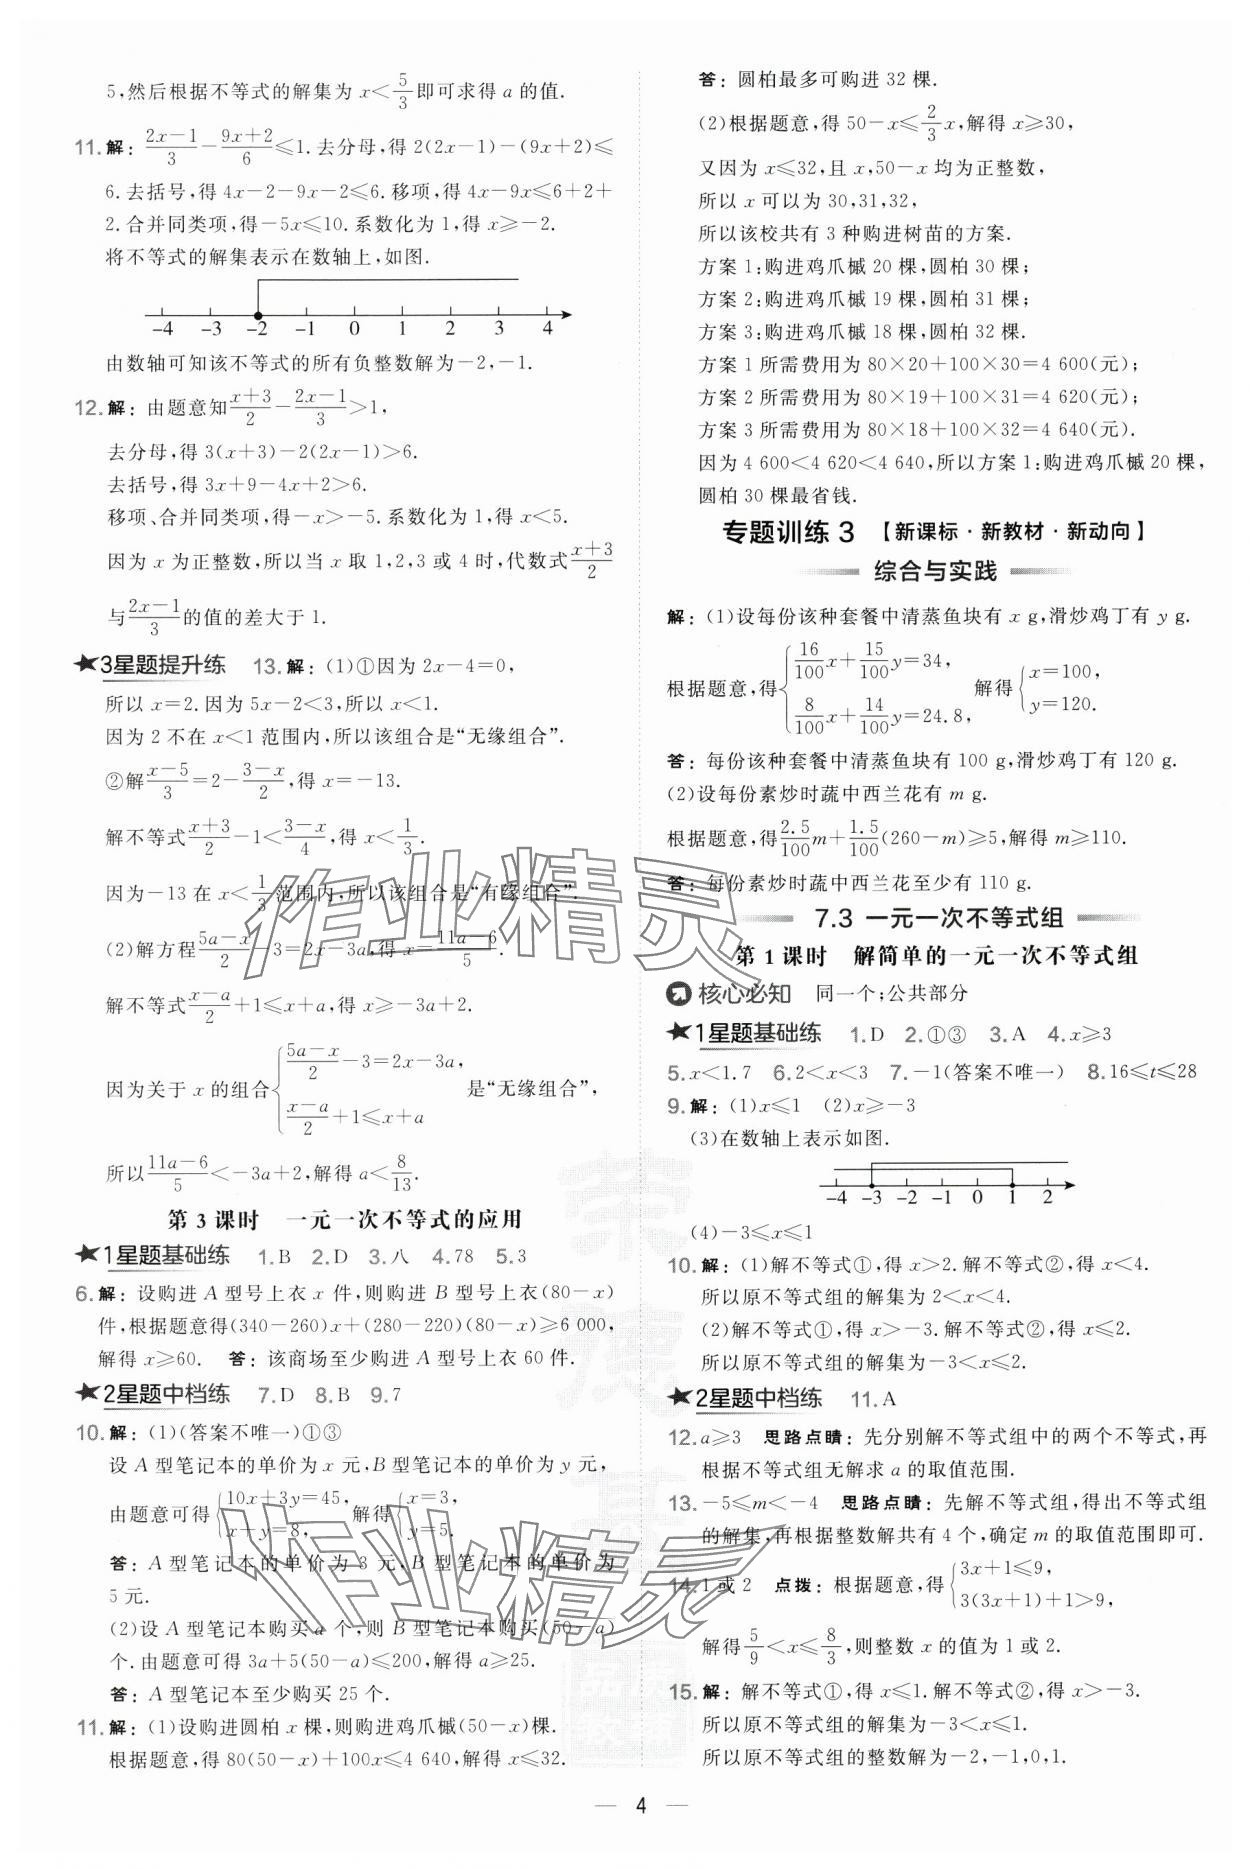 5,然后根据不等式的解集为 x<5/3即可求得 a 的值.
11.解: (2x-1)/3-(9x+2)/6≤1.去分母,得 2(2x-1)-(9x+2)≤
6.去括号,得 4x-2-9x-2≤6.移项,得 4x-9x≤6+2+
2.合并同类项,得-5x≤10.系数化为 1,得 x≥-2.
将不等式的解集表示在数轴上,如图.
-4 -3 -2 -1 0 1 2 3 4
由数轴可知该不等式的所有负整数解为-2,-1.
12.解:由题意知(x+3)/2-(2x-1)/3>1,
去分母,得 3(x+3)-2(2x-1)>6.
去括号,得 3x+9-4x+2>6.
移项、合并同类项,得-x>-5.系数化为 1,得 x<5.
因为 x 为正整数,所以当 x 取 1,2,3 或 4 时,代数式(x+3)/2
与(2x-1)/3的值的差大于 1.
★3星题提升练 13.解:(1)①因为 2x-4=0,
所以 x=2.因为 5x-2<3,所以 x<1.
因为 2 不在 x<1 范围内,所以该组合是“无缘组合”.
②解(x-5)/3=2-(3-x)/2,得 x=-13.
解不等式(x+3)/2-1<(3-x)/4,得 x<1/3.
因为-13 在 x<1/3范围内,所以该组合是“有缘组合”.
(2)解方程(5a-x)/2-3=2x-3a,得 x=(11a-6)/5.
解不等式(x-a)/2+1≤x+a,得 x≥-3a+2.
因为关于 x 的组合{(5a-x)/2-3=2x-3a, (x-a)/2+1≤x+a 是“无缘组合”,
所以(11a-6)/5<-3a+2,解得 a<8/13.
第 3 课时 一元一次不等式的应用
★1星题基础练 1.B 2.D 3.八 4.78 5.3
6.解:设购进 A 型号上衣 x 件,则购进 B 型号上衣(80-x)
件,根据题意得(340-260)x+(280-220)(80-x)≥6 000,
解得 x≥60. 答:该商场至少购进 A 型号上衣 60 件.
★2星题中档练 7.D 8.B 9.7
10.解:(1)(答案不唯一)①③
设 A 型笔记本的单价为 x 元,B 型笔记本的单价为 y 元,
由题意可得{10x+3y=45, x+y=8, 解得{x=3, y=5.
答:A 型笔记本的单价为 3 元,B 型笔记本的单价为
5 元.
(2)设 A 型笔记本购买 a 个,则 B 型笔记本购买(50-a)
个.由题意可得 3a+5(50-a)≤200,解得 a≥25.
答:A 型笔记本至少购买 25 个.
11.解:(1)设购进圆柏 x 棵,则购进鸡爪槭(50-x)棵.
根据题意,得 80(50-x)+100x≤4 640,解得 x≤32.
答:圆柏最多可购进 32 棵.
(2)根据题意,得 50-x≤2/3x,解得 x≥30,
又因为 x≤32,且 x,50-x 均为正整数,
所以 x 可以为 30,31,32,
所以该校共有 3 种购进树苗的方案.
方案 1:购进鸡爪槭 20 棵,圆柏 30 棵;
方案 2:购进鸡爪槭 19 棵,圆柏 31 棵;
方案 3:购进鸡爪槭 18 棵,圆柏 32 棵.
方案 1 所需费用为 80×20+100×30=4 600(元);
方案 2 所需费用为 80×19+100×31=4 620(元);
方案 3 所需费用为 80×18+100×32=4 640(元).
因为 4 600<4 620<4 640,所以方案 1:购进鸡爪槭 20 棵,
圆柏 30 棵最省钱.
专题训练 3 【新课标·新教材·新动向】
综合与实践
解:(1)设每份该种套餐中清蒸鱼块有 x g,滑炒鸡丁有 y g.
根据题意,得{16/100x+15/100y=34, 8/100x+14/100y=24.8, 解得{x=100, y=120.
答:每份该种套餐中清蒸鱼块有 100 g,滑炒鸡丁有 120 g.
(2)设每份素炒时蔬中西兰花有 m g.
根据题意,得2.5/100m+1.5/100(260-m)≥5,解得 m≥110.
答:每份素炒时蔬中西兰花至少有 110 g.
7.3 一元一次不等式组
第 1 课时 解简单的一元一次不等式组
核心必知 同一个;公共部分
★1星题基础练 1.D 2.①③ 3.A 4.x≥3
5.x<1.7 6.2<x<3 7.-1(答案不唯一) 8.16≤t≤28
9.解:(1)x≤1 (2)x≥-3
(3)在数轴上表示如图.
-4 -3 -2 -1 0 1 2
(4)-3≤x≤1
10.解:(1)解不等式①,得 x>2.解不等式②,得 x<4.
所以原不等式组的解集为 2<x<4.
(2)解不等式①,得 x>-3.解不等式②,得 x≤2.
所以原不等式组的解集为-3<x≤2.
★2星题中档练 11.A
12.a≥3 思路点睛:先分别解不等式组中的两个不等式,再
根据不等式组无解求 a 的取值范围.
13.-5≤m<-4 思路点睛:先解不等式组,得出不等式组
的解集,再根据整数解共有 4 个,确定 m 的取值范围即可.
14.1 或 2 点拨:根据题意,得{3x+1≤9, 3(3x+1)+1>9,
解得5/9<x≤8/3,则整数 x 的值为 1 或 2.
15.解:解不等式①,得 x≤1.解不等式②,得 x>-3.
所以原不等式组的解集为-3<x≤1.
所以原不等式组的整数解为-2,-1,0,1.
4
作业精灵
作业精灵